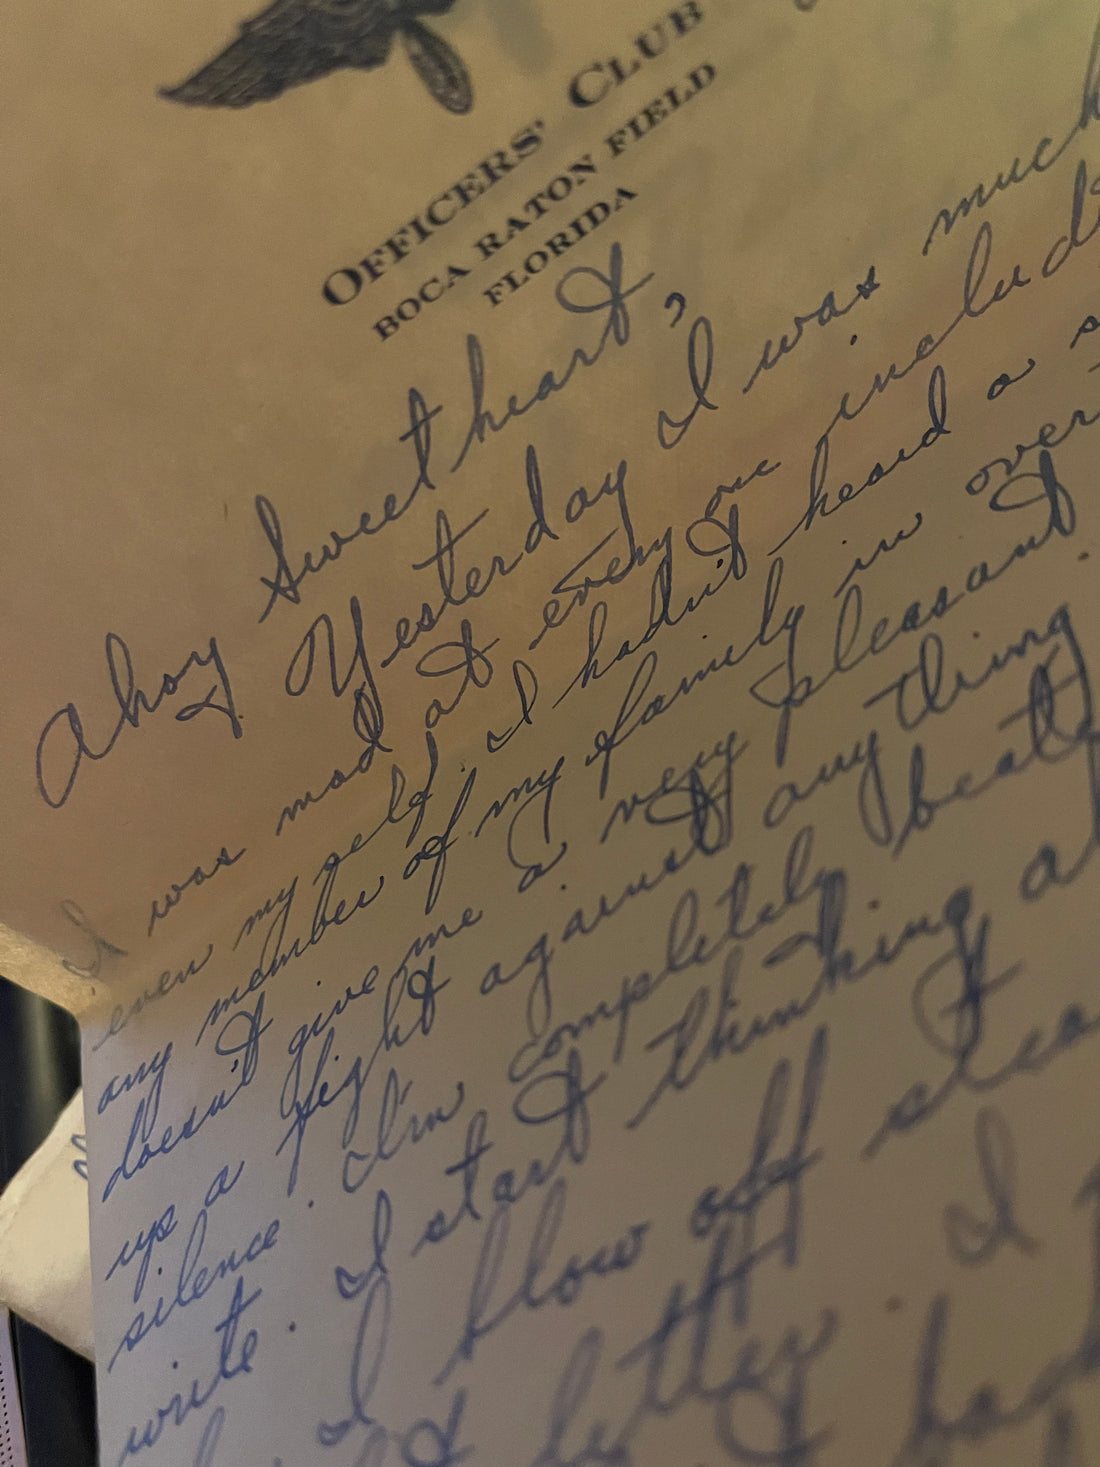 OFFICERS' CLUB
BOCA RATON FIELD
FLORIDA
Ahoy Sweetheart,
& Yesterday I was much
I was mad at every one includ
even my self. I hadn't heard a s
any member of my family in over
doesn't give me a very pleasant
up a fight against any thing
silence. I'm completely beat
write. I start thinking a
I blow off stea
letter. I
had